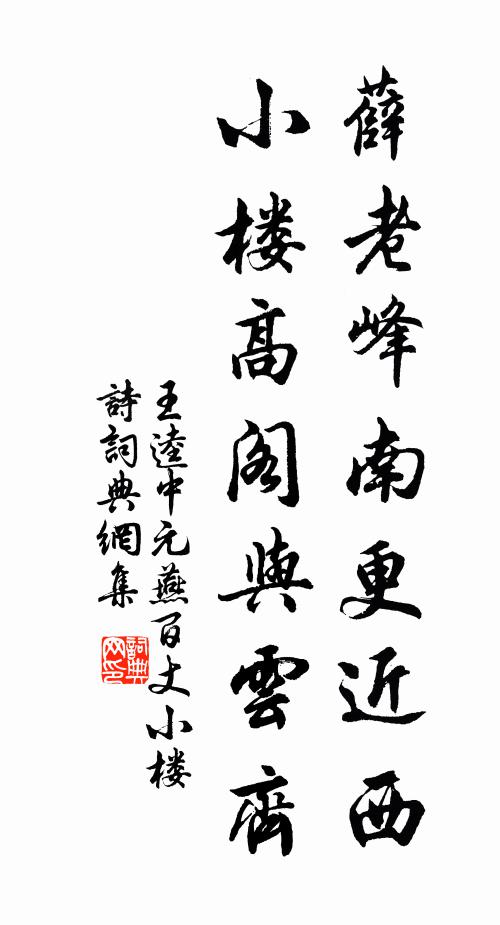 薛老峰南更近西
小楼高阁與雲齊
王逵中元燕百丈小楼
詩詞典網集
詞典網印